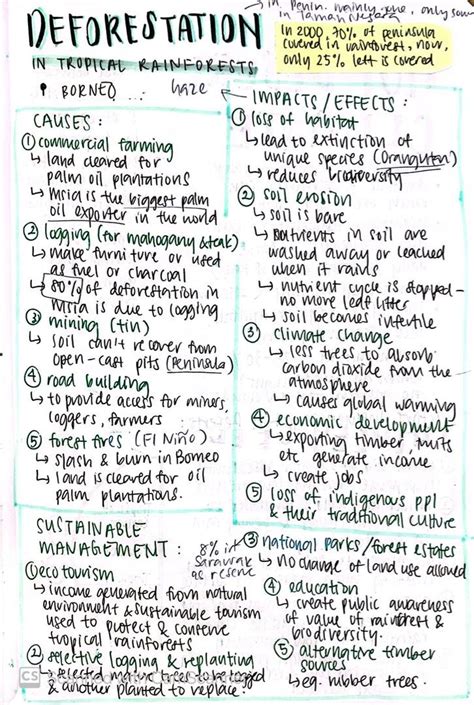 → in Penin. mainly
only
in Taman Negara
DEFORESTATION
IN TROPICAL RAINFORESTS
BORNEO
haze
In 2000, 70% of peninsula
covered in rainforest, now,
only 25% left is covered
CAUSES:
① commercial farming
↳ land cleared for
palm oil plantations
↳ M'sia is the biggest palm
oil exporter in the world
② logging (for mahogany &teak)
↳ make furniture or used
as fuel or charcoal
↳ 80% of deforestation in
M'sia is due to logging
③ mining (tin)
↳ soil can't recover from
open-cast pits (peninsula)
④ road building
↳ to provide access for miners,
loggers, farmers
⑤ forest fires (El Niño)
↳ slash & burn in Borneo
↳ land is cleared for oil
palm plantations.
IMPACTS / EFFECTS :
① loss of habitat
↳ lead to extinction of
unique species (Orangutan)
↳ reduces biodiversity
② soil erosion
↳ soil is bare
↳ nutrients in soil are
washed away or leached
when it rains
↳ nutrient cycle is stopped -
no more leaf litter
↳ soil becomes infertile
③ climate change
↳ less trees to absorb
carbon dioxide from the
atmosphere
↳ causes global warming
④ economic development
↳ exporting timber, fruits
etc generate income
↳ create jobs.
⑤ loss of indigenous ppl
& their traditional culture
SUSTAINABLE
MANAGEMENT :
8% in
Sarawak
as reserve
① ecotourism
↳ income generated from natural
environment & sustainable tourism
used to protect & conserve
tropical rainforests
② selective logging & replanting
↳ selected mature trees to be logged
& another planted to replace.
③ national parks / forest estates
↳ no change of land use allowed
④ education
↳ create public awareness
of value of rainforest &
biodiversity.
⑤ alternative timber
sources
↳ eg. rubber trees.
CS Scanned with CamScanner